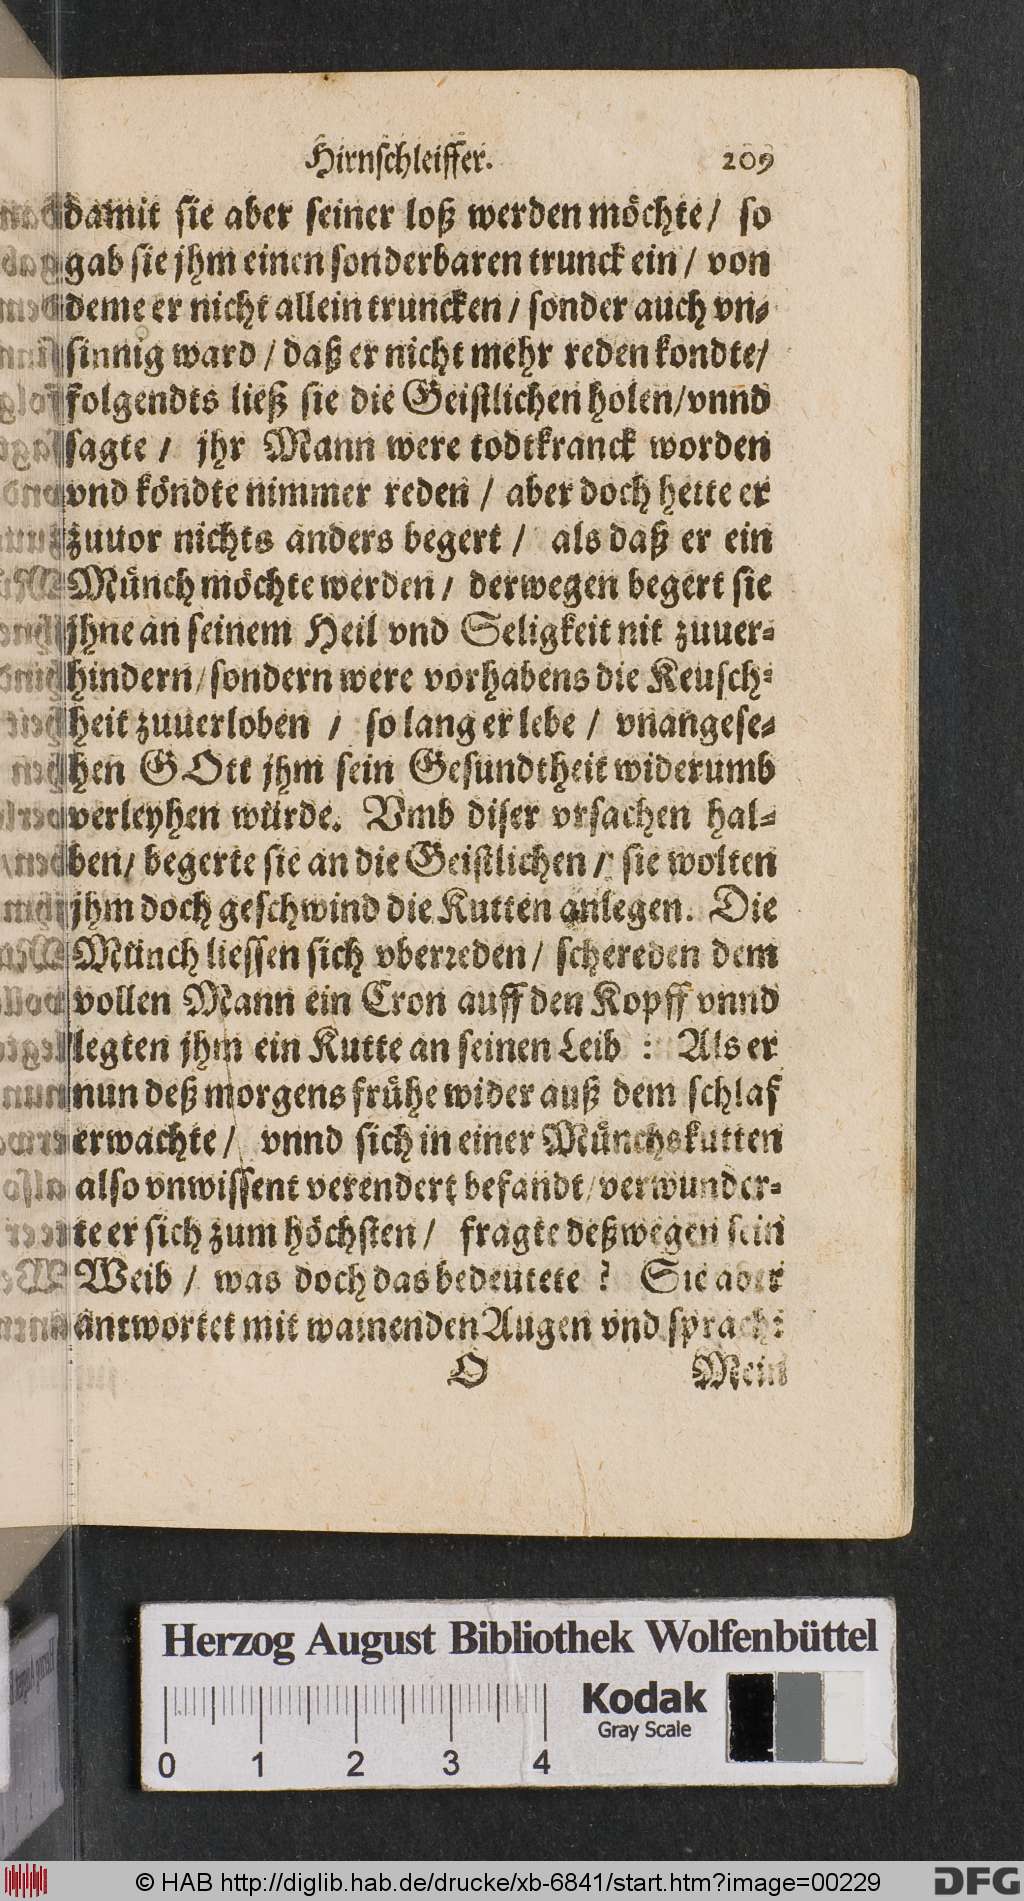 Hirnschleiffer. 209
damit sie aber seiner loß werden möchte / so
gab sie jhm einen sonderbaren trunck ein / von
deme er nicht allein truncken / sonder auch vn-
sinnig ward / daß er nicht mehr reden kondte /
folgendts ließ sie die Geistlichen holen / vnnd
sagte / jhr Mann were todtkranck worden
vnd köndte nimmer reden / aber doch hette er
zuuor nichts anders begert / als daß er ein
Münch möchte werden / derwegen begert sie
jhne an seinem Heil vnd Seligkeit nit zuuer-
hindern / sondern were vorhabens die Keusch-
heit zuuerloben / so lang er lebe / vnangese-
hen GOtt jhm sein Gesundtheit widerumb
verleyhen würde. Vmb diser vrsachen hal-
ben / begerte sie an die Geistlichen / sie wolten
jhm doch geschwind die Kutten anlegen. Die
Münch liessen sich vberreden / schereden dem
vollen Mann ein Cron auff den Kopff vnnd
legten jhm ein Kutte an seinen Leib : Als er
nun deß morgens frühe wider auß dem schlaf
erwachte / vnnd sich in einer Münchskutten
also vnwissent verendert befandt / verwunder-
te er sich zum höchsten / fragte deßwegen sein
Weib / was doch das bedeutete ? Sie aber
antwortet mit wainenden Augen vnd sprach :
O Mein
Herzog August Bibliothek Wolfenbüttel
Kodak
Gray Scale
0 1 2 3 4
© HAB http://diglib.hab.de/drucke/xb-6841/start.htm?image=00229
DFG